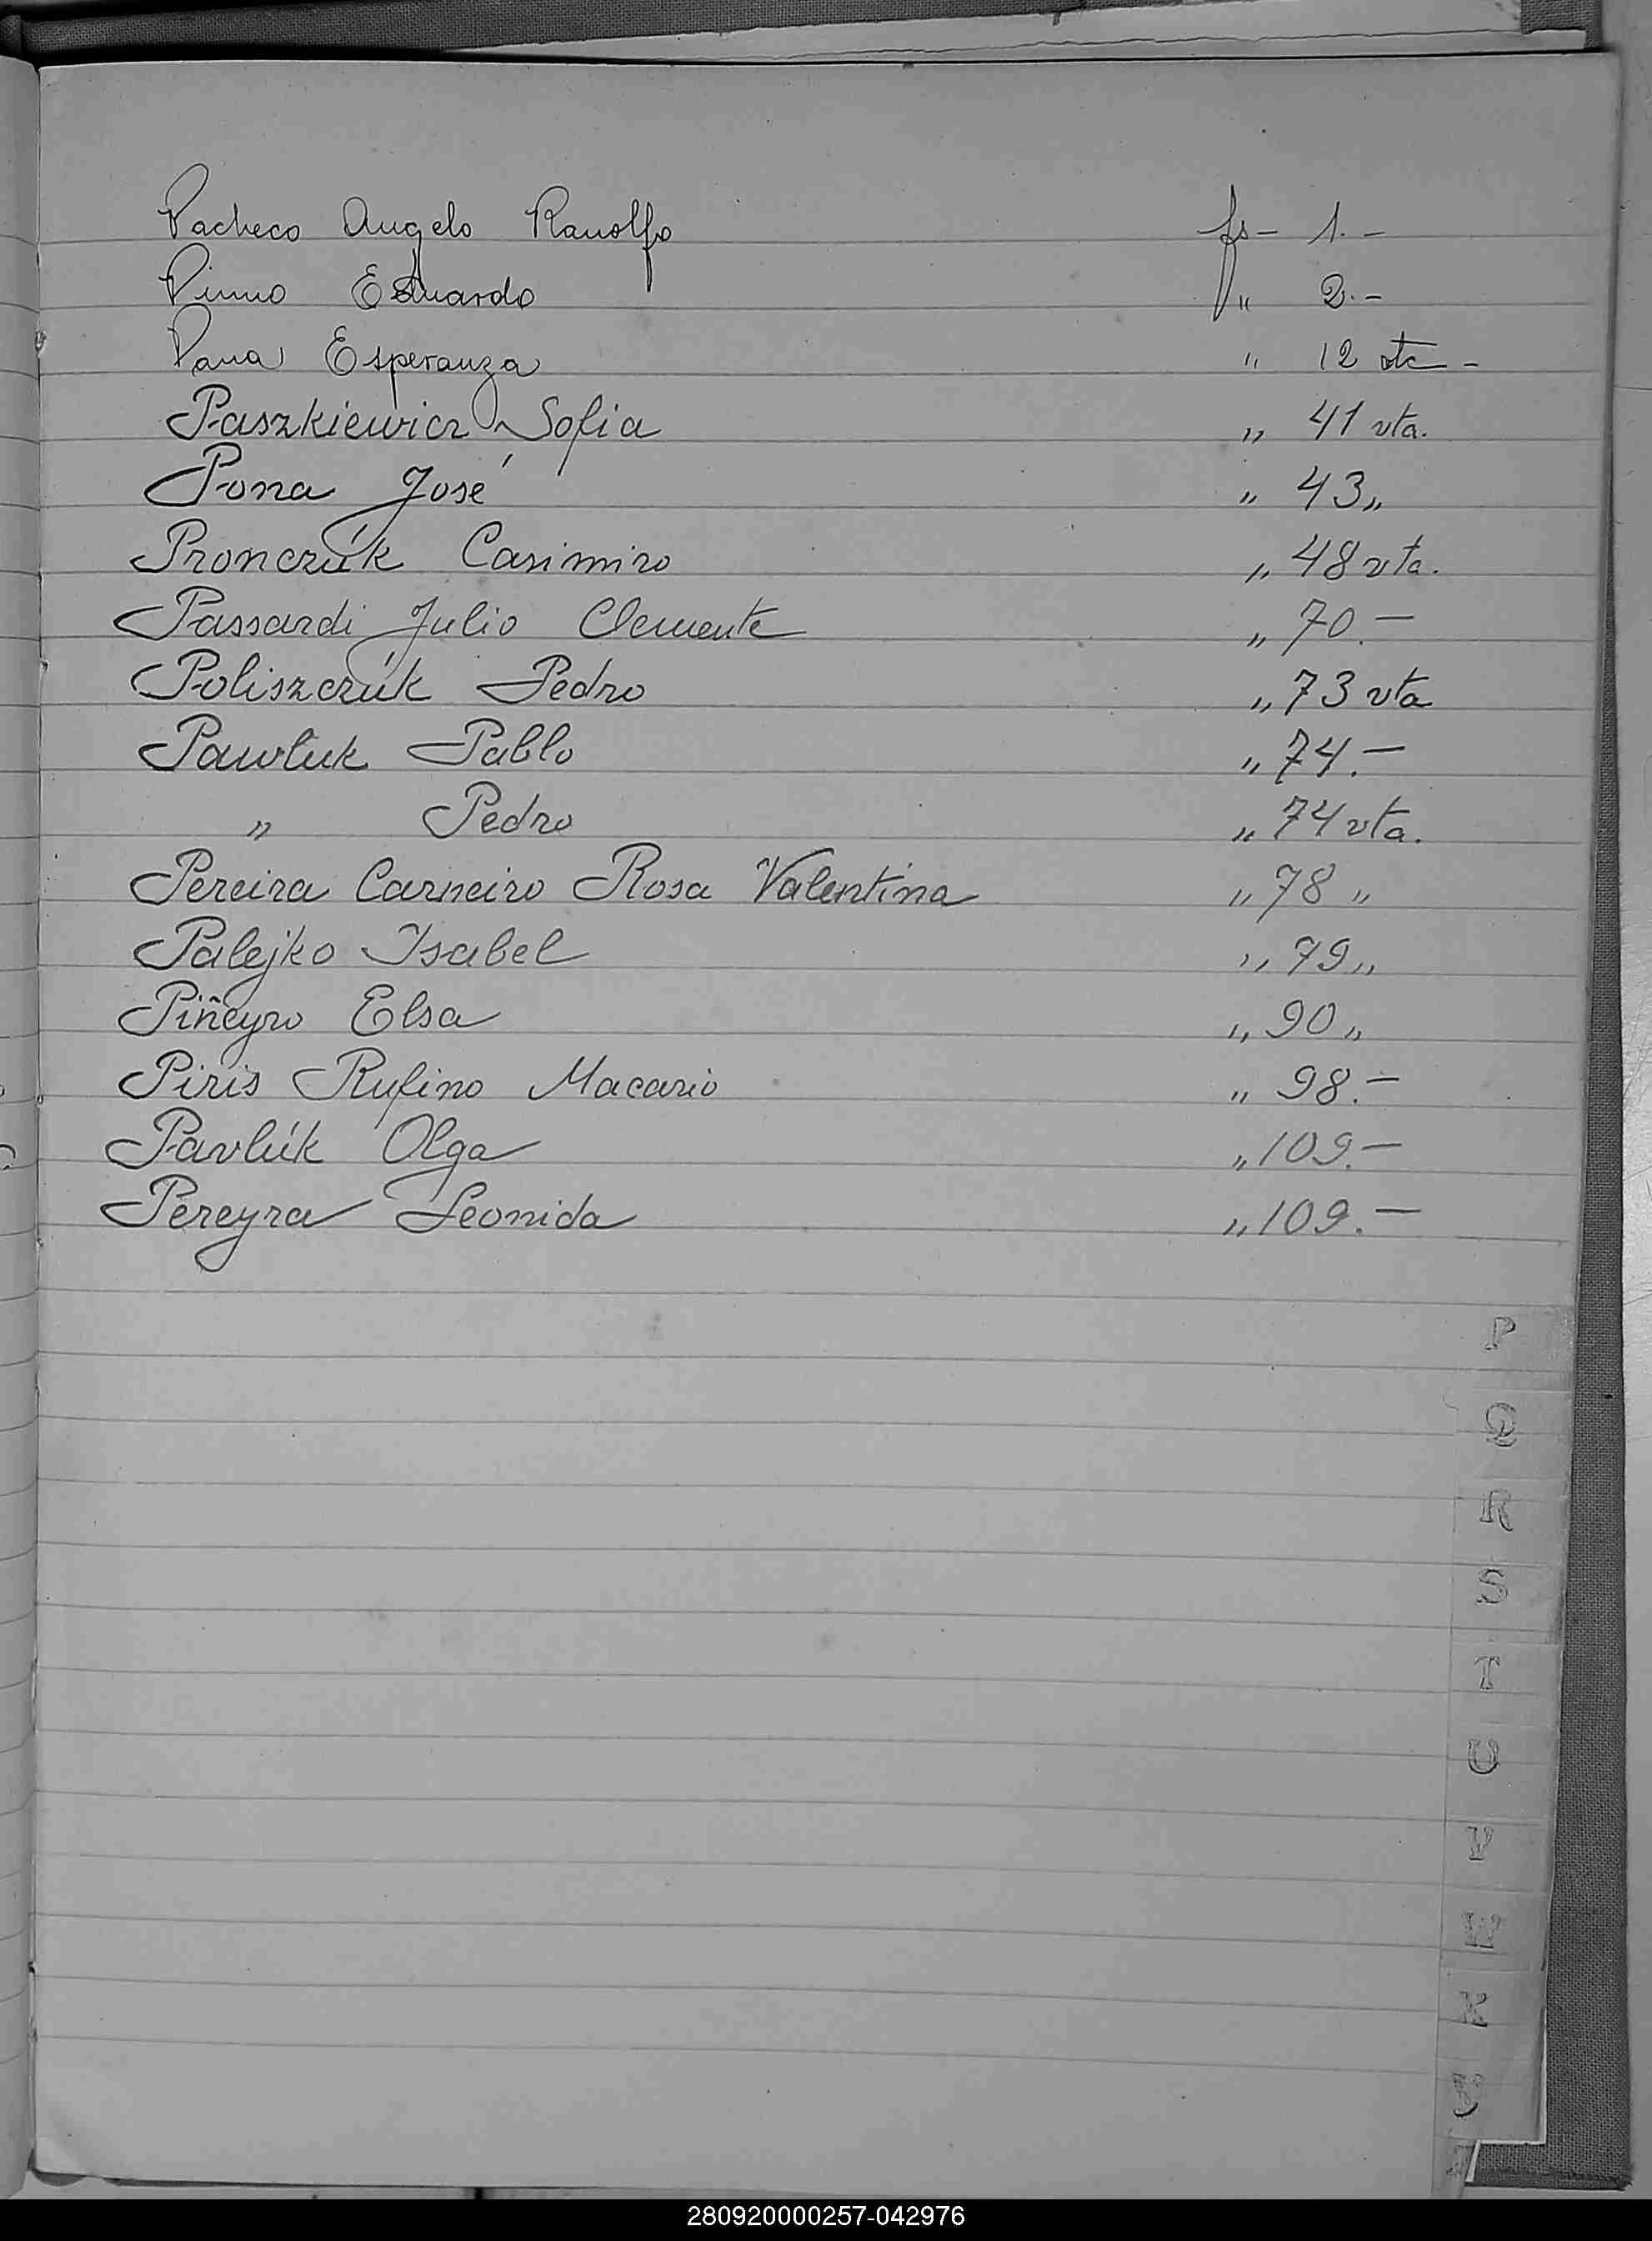 Pacheco Angelo Ranolfo fs- 1.-
Pinno Eduardo " 2.-
Pana Esperanza " 12 vta -
Paszkiewicz Sofia " 41 vta.
Pona José " 43 "
Pronczúk Casimiro " 48 vta.
Passardi Julio Clemente " 70.-
Poliszczúk Pedro " 73 vta
Pawluk Pablo " 74.-
" Pedro " 74 vta.
Pereira Carneiro Rosa Valentina " 78 "
Palejko Isabel " 79 "
Piñeyro Elsa " 90 "
Piris Rufino Macario " 98.-
Pavlúk Olga " 109.-
Pereyra Leonida " 109.-
P
Q
R
S
T
U
V
W
X
280920000257-042976